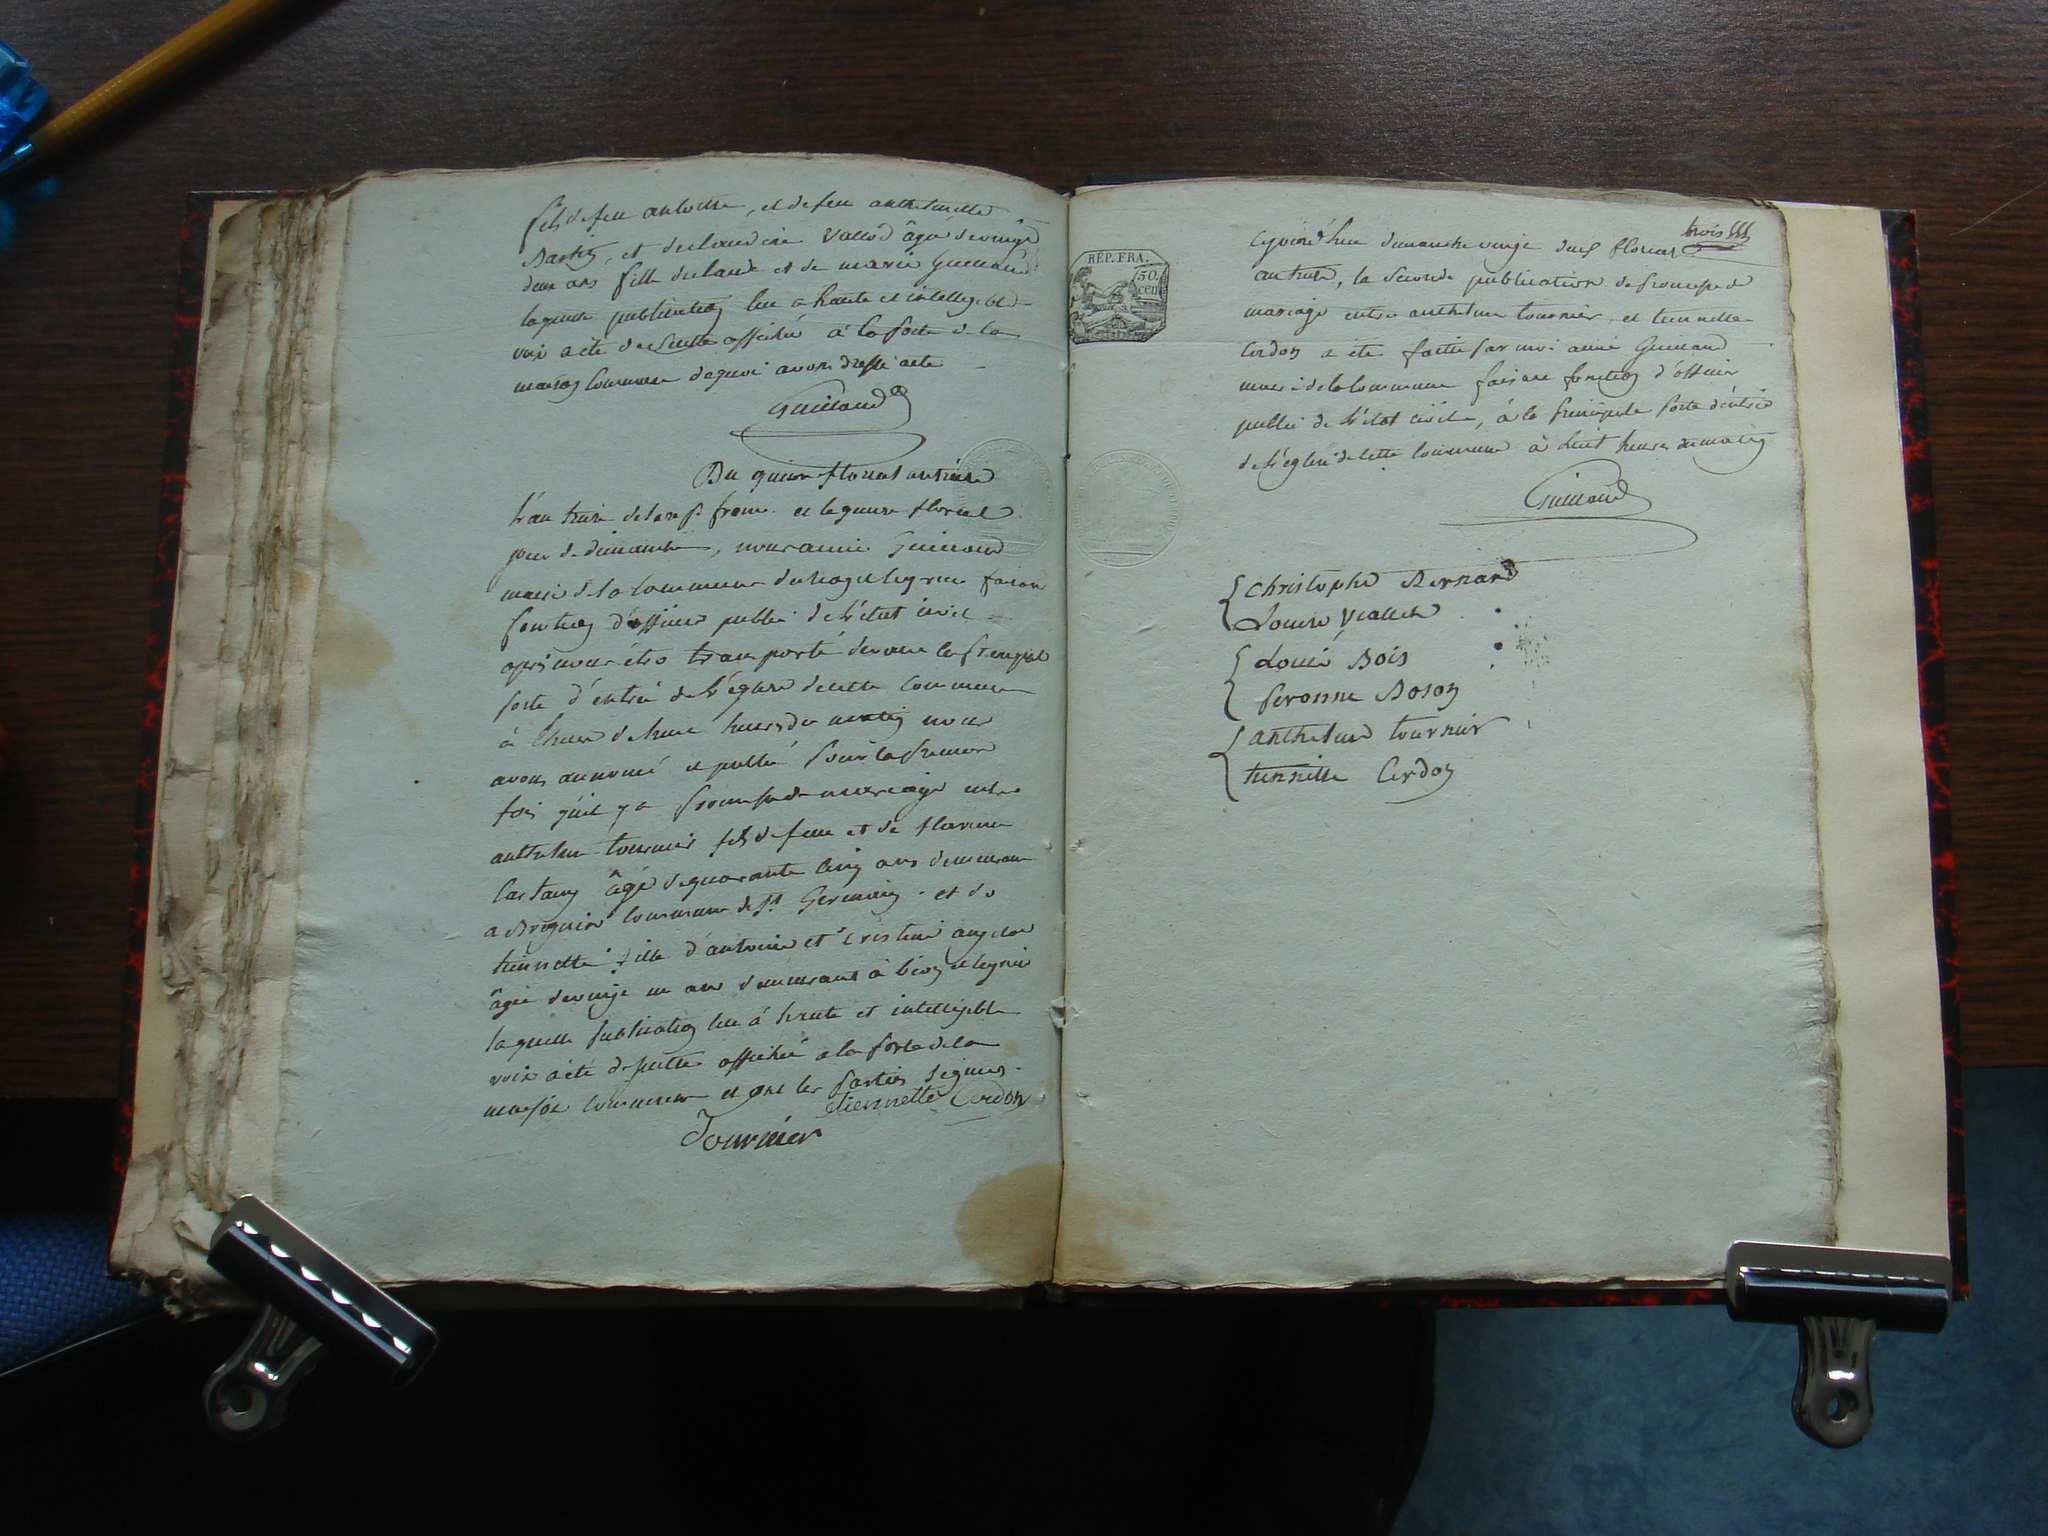 fils de feu antoine, et de feu anthelmette
et de claudine Vallod âgée de vingt
deux ans fille de claude et de marie Guinand
laquelle publication lue a haute et intelligible
voix a été de suite affiché à la porte de la
maison commune de quoi avons dressé acte
Guinand
Du quinze floreal an treize
L'an treize de la rep. franc. et le quinze floreal
jour de dimanche, nous aimé Guinand
maire de la commune de faisan
fonction d'officier public de l'état civil
apres nous être transporté devant la principal
porte d'entrée de l'église de cette commune
à l'heure de huit heures du matin nous
avons annoncé et publié pour la premiere
fois qu'il y a promesse de mariage entre
anthelme tournier fils de feu et de
âgé de quarante cinq ans demeurant
a commune de St Germain et de
tiennette fille d'antoine et cristine
âgée de vingt un ans demeurant à
laquelle publication lue à haute et intelligible
voix a été de suitte affiché a la porte de la
maison commune et ont les parties signées
etiennette Cerdon
Tournier
trois
REP. FRA.
50.
cen
Cejourd'hui dimanche vingt deux floreal
an treize, la seconde publication de promesse de
mariage entre anthelme tournier et tiennette
Cerdon a été faitte par moi aimé Guinand
maire de la commune faisant fonction d'officier
public de l'état civile, à la principale porte d'entrée
de l'église de cette commune à huit heures du matin
Guinand
Christophe Bernard
Louise Viallet
Louis Bois
peronne Boson
anthelme tournier
tiennette Cerdon